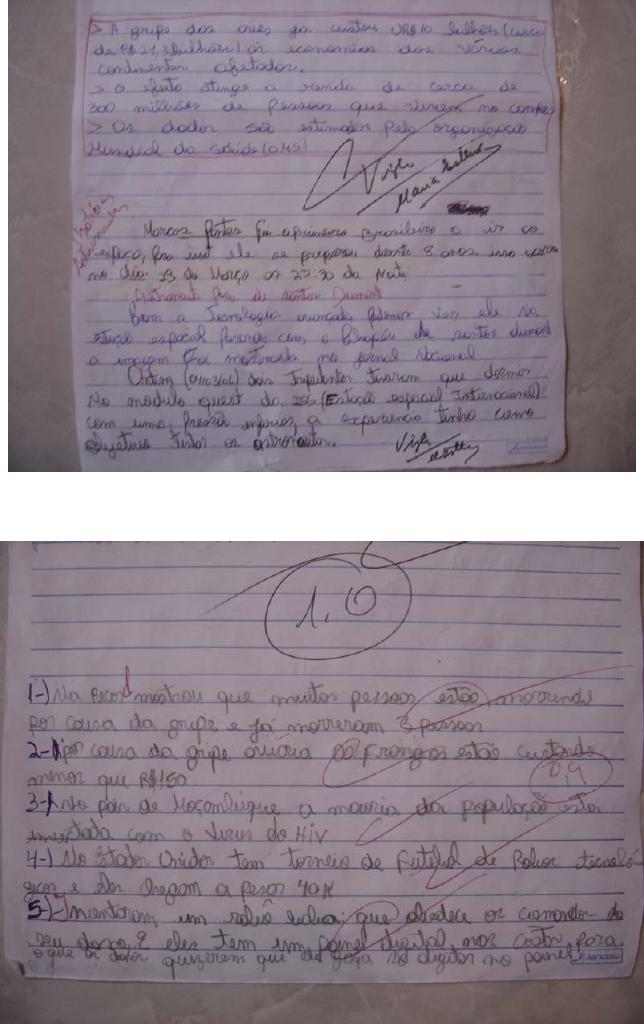 > A gripe das aves ja custou US$10 bilhões (cerca
de R$ 21,3 bilhões) ás economias dos vários
continentes afetados.
> o efeito atinge a renda de cerca de
300 milhões de pessoas que vivem no campo
> Os dados são estimados pela organização
Mundial da saúde (OMS)
Visto
Maria
Notícias
Marcos Pontes foi o primeiro Brasileiro a ir ao
espaço, para isso ele se preparou durante 8 anos isso
no dia 23 de Março as 23:30 da Noite
Astronauta de santos Dumont
Com a Tecnologia avançada podemos ver ele na
estação espacial fazendo com o chapéu de santos dumont
a imagem foi mostrada no jornal Nacional
Ontem (04/03/06) dois Tripulantes tiveram que dormir
No modulo quest da ISS (Estação espacial Internacional)
com uma pressão inferior, a experiencia tinha como
objetivo testar os astronautas.
Visto
1,0
1-) Na Record mostrou que muitas pessoas estão morrendo
por causa da gripe e já morreram 3 pessoas
2-) por causa da gripe aviária os frangos estão custando
menos que R$1,50
0,4
3-) No país de Moçambique a maioria da população esta
infectada com o Virus do HIV
4-) No Estados Unidos tem torneio de Futebol de Robos tecnoló-
gicos e eles chegam a pesar 40K
5-) Inventaram um robô que obedece os comandos do
seu dono, e eles tem um painel digital nas costas, para
o que os donos quizerem que ele faça só digitar no painel